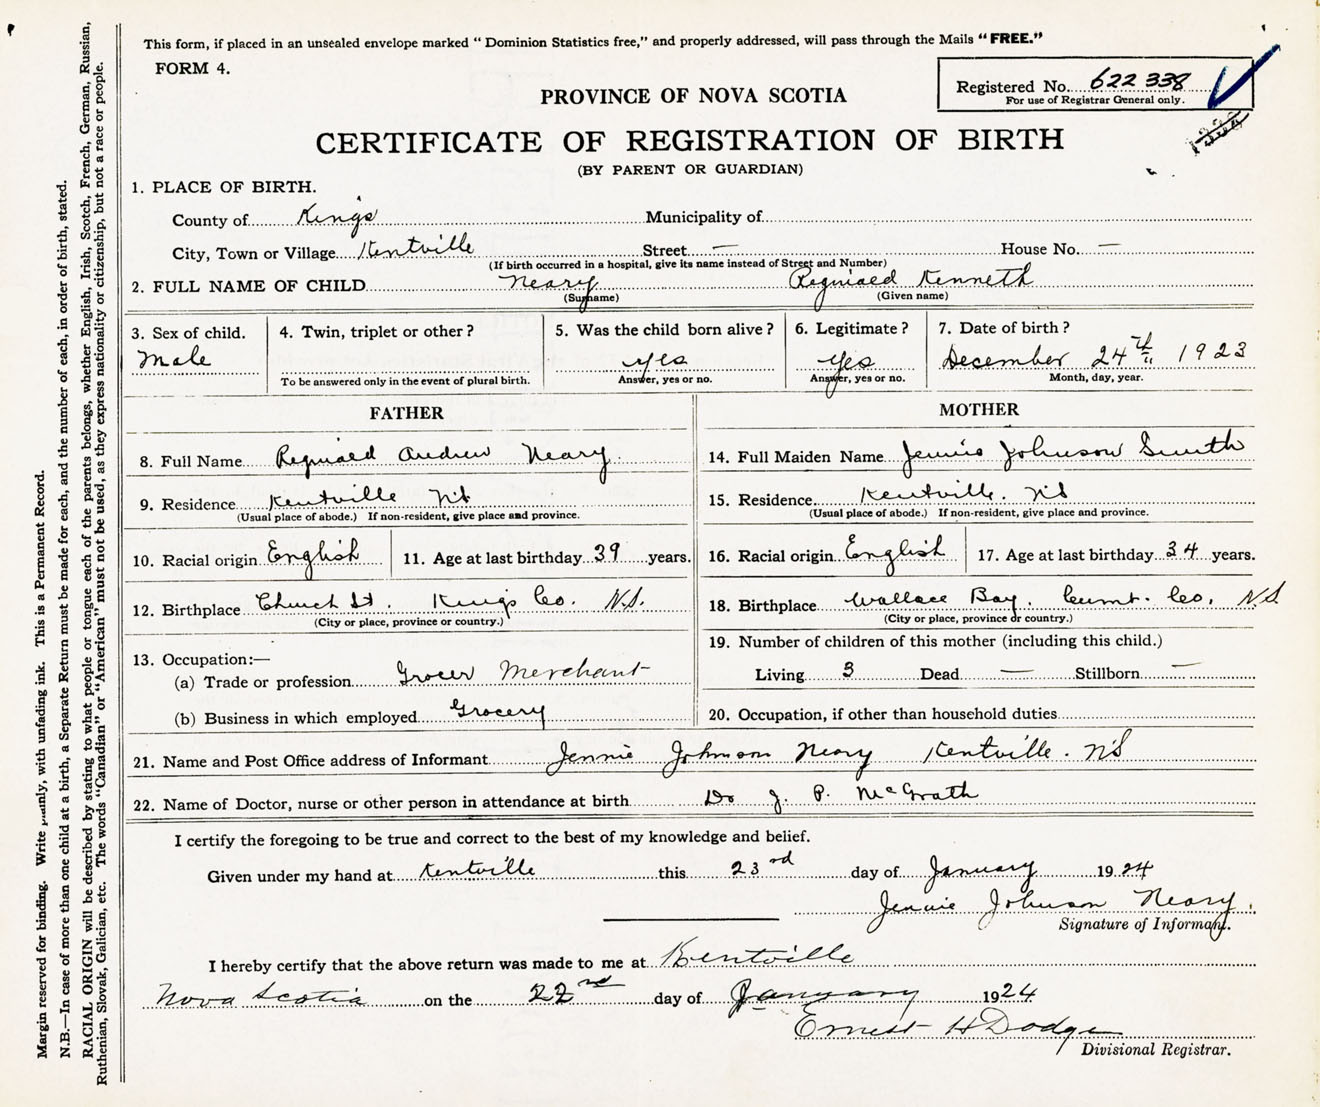 This form, if placed in an unsealed envelope marked " Dominion Statistics free," and properly addressed, will pass through the Mails "FREE."
FORM 4.
Registered No. 622 338
For use of Registrar General only.
PROVINCE OF NOVA SCOTIA
CERTIFICATE OF REGISTRATION OF BIRTH
(BY PARENT OR GUARDIAN)
1. PLACE OF BIRTH.
County of Kings Municipality of
City, Town or Village Kentville Street — House No. —
(If birth occurred in a hospital, give its name instead of Street and Number)
2. FULL NAME OF CHILD Neary Reginald Kenneth
(Surname) (Given name)
3. Sex of child. 4. Twin, triplet or other? 5. Was the child born alive? 6. Legitimate? 7. Date of birth?
Male yes yes December 24th 1923
To be answered only in the event of plural birth. Answer, yes or no. Answer, yes or no. Month, day, year.
FATHER MOTHER
8. Full Name Reginald Andrew Neary 14. Full Maiden Name Jennie Johnson Smith
9. Residence Kentville NS 15. Residence Kentville. NS
(Usual place of abode.) If non-resident, give place and province. (Usual place of abode.) If non-resident, give place and province.
10. Racial origin English 11. Age at last birthday 39 years. 16. Racial origin English 17. Age at last birthday 34 years.
12. Birthplace Church St. Kings Co. N.S. 18. Birthplace Wallace Bay, Cumt. Co, N.S
(City or place, province or country.) (City or place, province or country.)
13. Occupation:— 19. Number of children of this mother (including this child.)
(a) Trade or profession Grocer Merchant Living 3 Dead — Stillborn —
(b) Business in which employed Grocery 20. Occupation, if other than household duties
21. Name and Post Office address of Informant Jennie Johnson Neary Kentville. NS
22. Name of Doctor, nurse or other person in attendance at birth Dr J. P. McGrath
I certify the foregoing to be true and correct to the best of my knowledge and belief.
Given under my hand at Kentville this 23rd day of January 1924
Jennie Johnson Neary.
Signature of Informant.
I hereby certify that the above return was made to me at Kentville
Nova Scotia on the 22nd day of January 1924
Ernest H Dodge
Divisional Registrar.
Margin reserved for binding. Write plainly, with unfading ink. This is a Permanent Record.
N.B.—In case of more than one child at a birth, a Separate Return must be made for each, and the number of each, in order of birth, stated.
RACIAL ORIGIN will be described by stating to what people or tongue each of the parents belongs, whether English, Irish, Scotch, French, German, Russian,
Ruthenian, Slovak, Galician, etc. The words "Canadian" or "American" must not be used, as they express nationality or citizenship, but not a race or people.